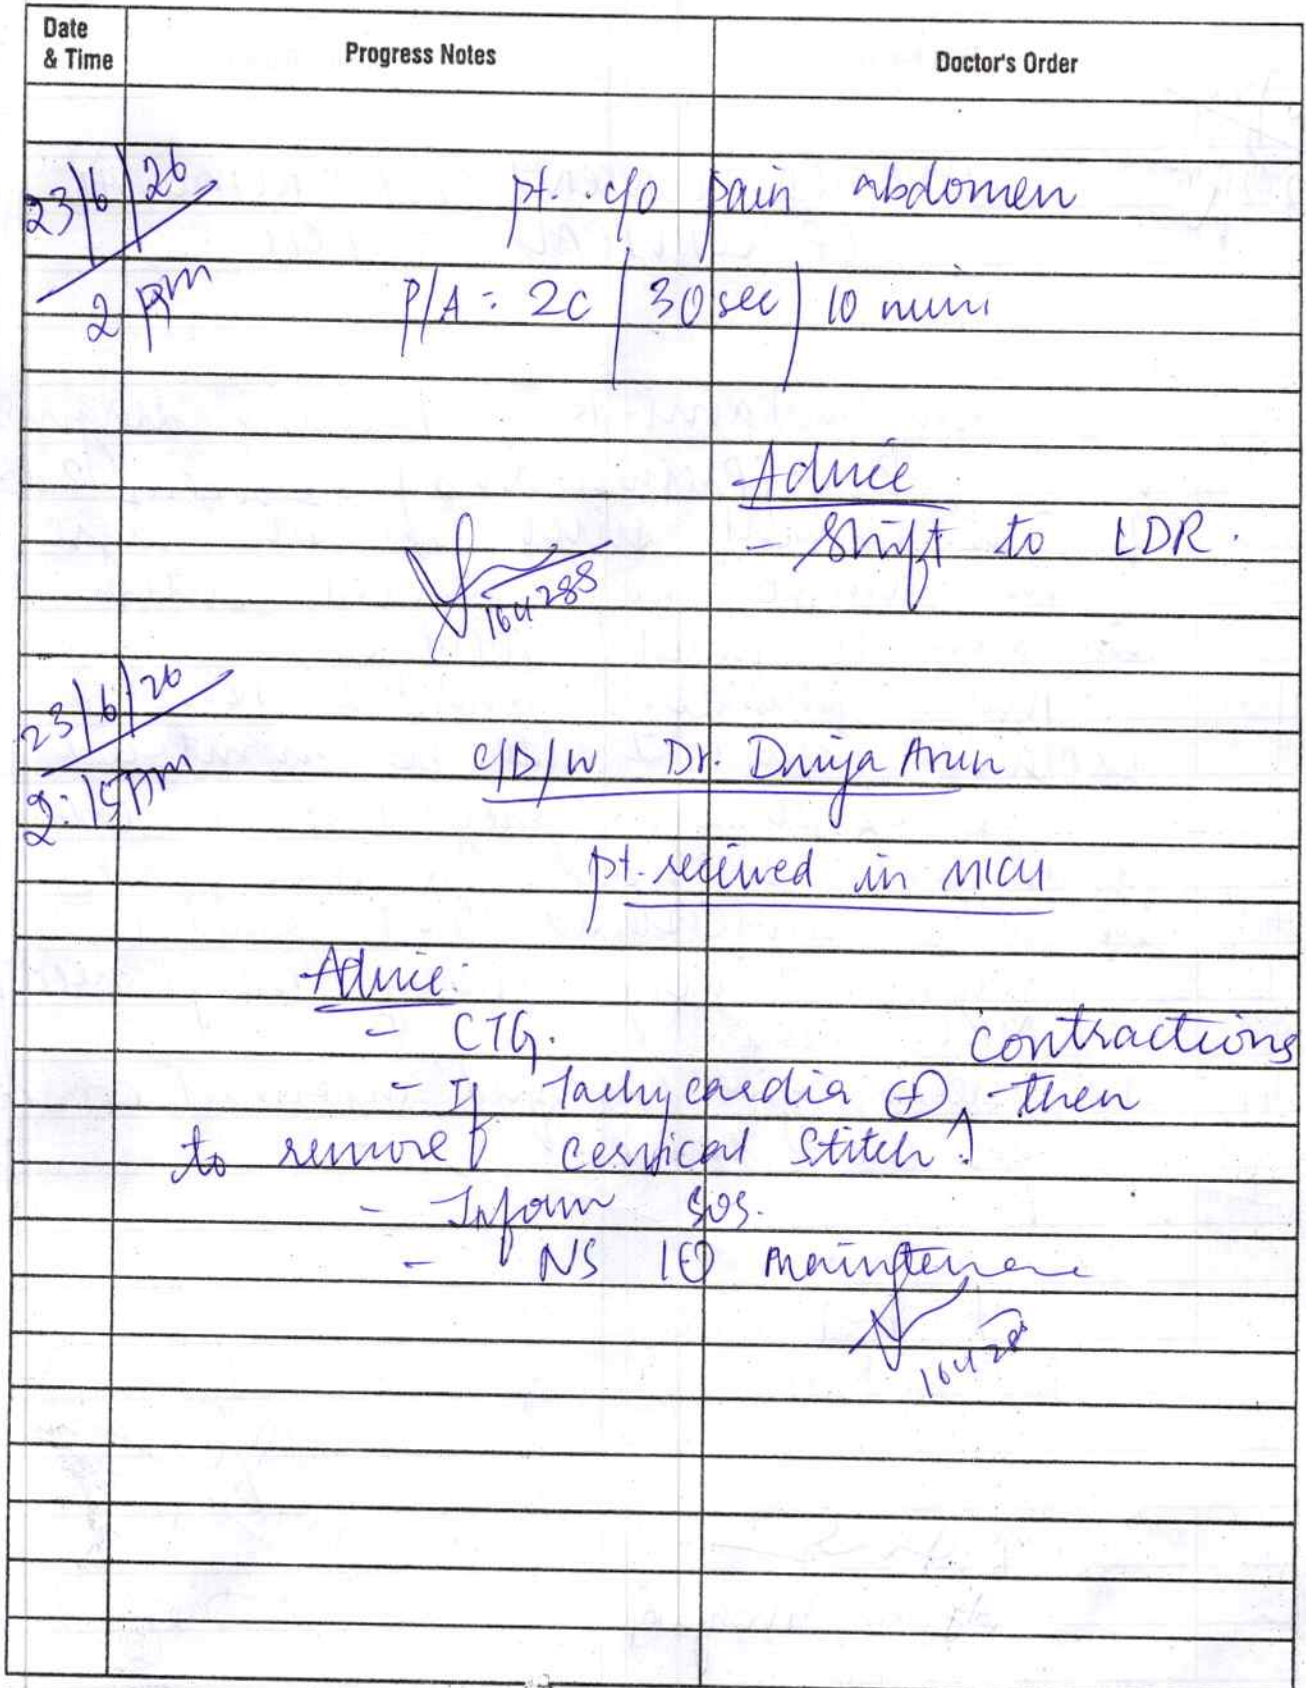 Date & Time Progress Notes Doctor's Order
23/6/26
2 pm
pt. c/o pain abdomen
P/A : 2C / 30 sec / 10 min
Advice
- Shift to LDR.
164288
23/6/26
2:15 pm
c/D/w Dr. Divya Arun
pt. received in MICU
Advice:
- CTG.
contractions
- If Tachycardia ⊕, then
to remove cervical stitch.
- Inform SOS.
- NS maintenance